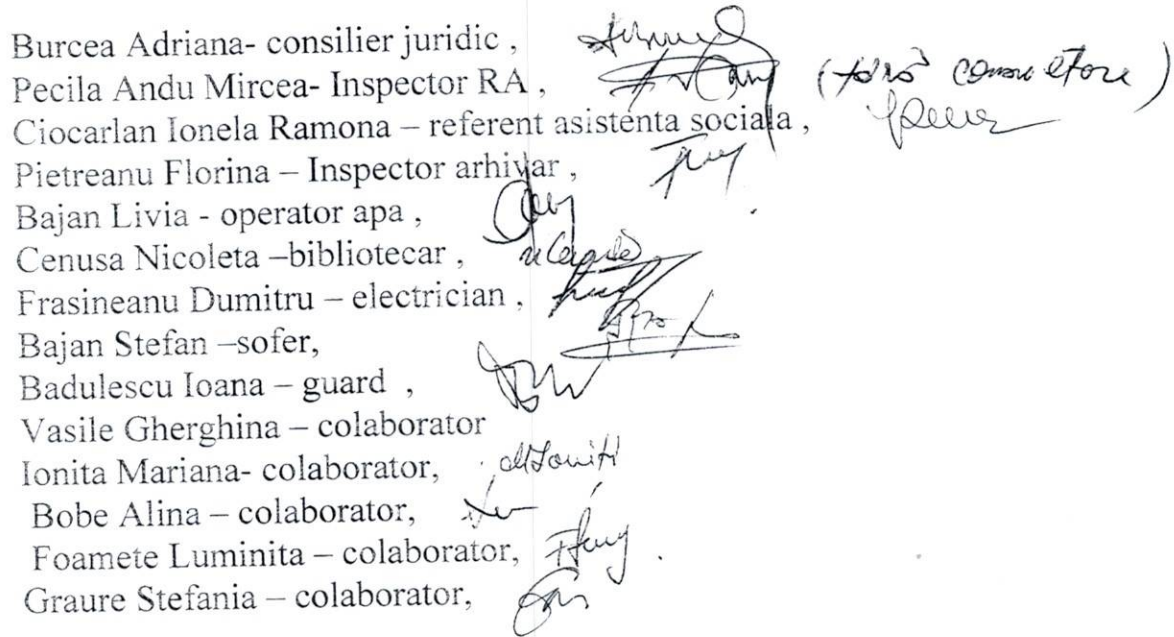 Burcea Adriana- consilier juridic ,
Pecila Andu Mircea- Inspector RA , (fără
Ciocarlan Ionela Ramona – referent asistenta sociala ,
Pietreanu Florina – Inspector arhivar ,
Bajan Livia - operator apa ,
Cenusa Nicoleta –bibliotecar ,
Frasineanu Dumitru – electrician ,
Bajan Stefan –sofer,
Badulescu Ioana – guard ,
Vasile Gherghina – colaborator
Ionita Mariana- colaborator,
Bobe Alina – colaborator,
Foamete Luminita – colaborator,
Graure Stefania – colaborator,